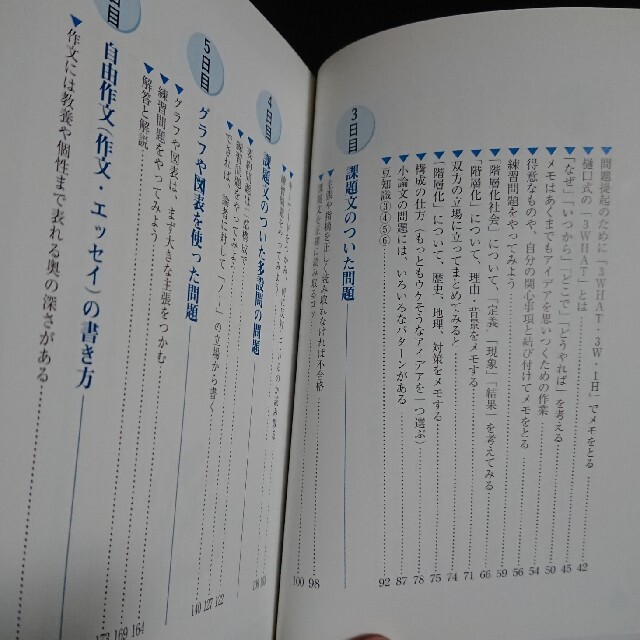 ▼問題提起のために「3WHAT・3W・1H」でメモをとる……42
▼樋口式の「3WHAT」とは……45
▼「なぜ」「いつから」「どこで」「どうやれば」を考える……50
▼メモはあくまでもアイデアを思いつくための作業……54
▼得意なものや、自分の関心事項と結び付けてメモをとる……56
▼練習問題をやってみよう……59
▼「階層化社会」について、「定義」「現象」「結果」を考えてみる……66
▼「階層化」について、理由・背景をメモする……71
▼双方の立場に立ってまとめてみると……74
▼「階層化」について、歴史、地理、対策をメモする……75
▼構成の仕方（もっともウケそうなアイデアを一つ選ぶ）……78
▼小論文の問題には、いろいろなパターンがある……87
▼豆知識④⑤⑥……92
3日目
課題文のついた問題
▼課題文を正確に読み取るコツ……98
▼主張や指摘を正しく読み取れなければ不合格……100
4日目
課題文のついた多設問の問題
▼練習問題をやってみよう
▼できれば、論者に対して「ノー」の立場から書く
5日目
グラフや図表を使った問題
▼グラフや図表は、まず大きな主張をつかむ……122
▼練習問題をやってみよう……127
▼解答と解説……140
日目
自由作文（作文・エッセイ）の書き方
▼作文には教養や個性まで表れる奥の深さがある……164
169
173